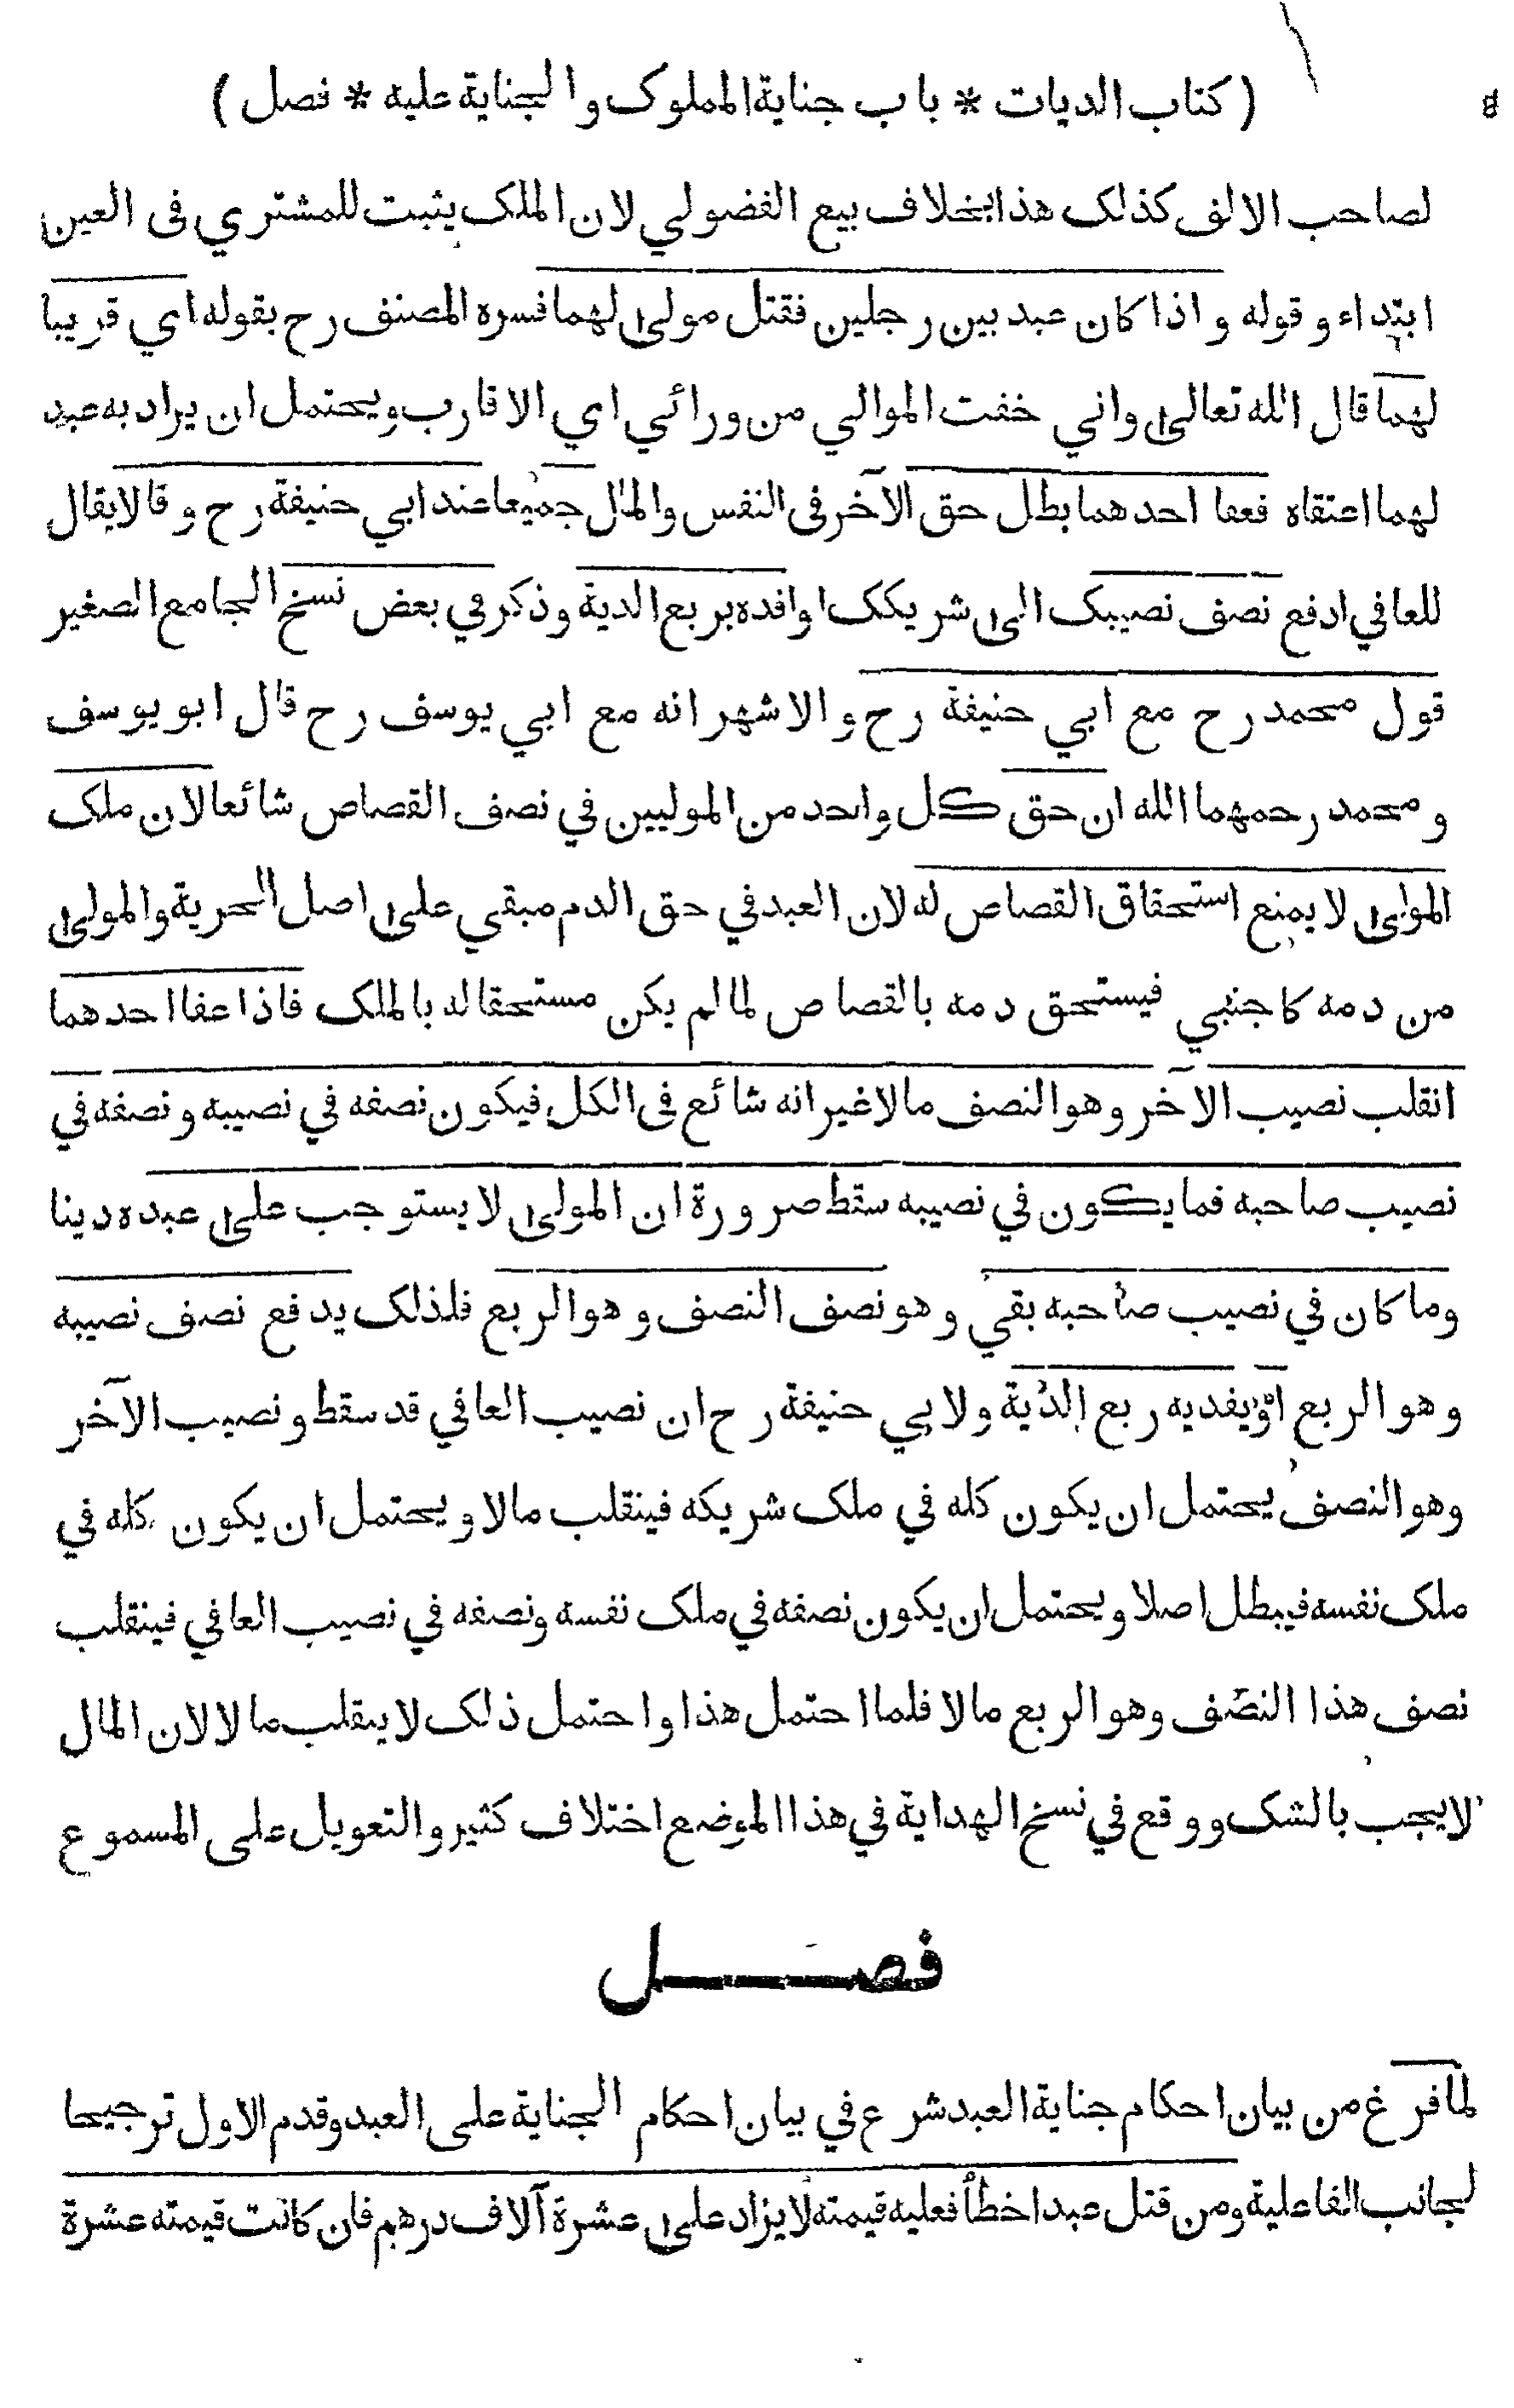 ( كتاب الديات * باب جناية المملوك والجناية عليه * فصل )
لصاحب الالف كذلك هذا بخلاف بيع الفضولي لان الملك يثبت للمشتري فى العين
ابتداء و قوله و اذا كان عبد بين رجلين فقتل مولى لهما فسره المصنف رح بقوله اي قريبا
لهما قال الله تعالى واني خفت الموالي من ورائي اي الاقارب ويحتمل ان يراد به عبد
لهما اعتقاه فعفا احدهما بطل حق الآخر فى النفس والمال جميعا عند ابي حنيفة رح و قالا يقال
للعافي ادفع نصف نصيبك الى شريكك او افده بربع الدية وذكر في بعض نسخ الجامع الصغير
قول محمد رح مع ابي حنيفة رح و الاشهر انه مع ابي يوسف رح قال ابو يوسف
و محمد رحمهما الله ان حق كل واحد من الموليين في نصف القصاص شائعا لان ملك
المولى لا يمنع استحقاق القصاص له لان العبد في حق الدم مبقي على اصل الحرية والمولى
من دمه كاجنبي فيستحق دمه بالقصاص لما لم يكن مستحقا له بالملك فاذا عفا احدهما
انقلب نصيب الآخر وهو النصف مالا غير انه شائع فى الكل فيكون نصفه في نصيبه و نصفه في
نصيب صاحبه فما يكون في نصيبه سقط ضرورة ان المولى لا يستوجب على عبده دينا
وما كان في نصيب صاحبه بقي و هو نصف النصف و هو الربع فلذلك يدفع نصف نصيبه
و هو الربع او يفديه ربع الدية ولابي حنيفة رح ان نصيب العافي قد سقط و نصيب الآخر
وهو النصف يحتمل ان يكون كله في ملك شريكه فينقلب مالا و يحتمل ان يكون كله في
ملك نفسه فيبطل اصلا و يحتمل ان يكون نصفه في ملك نفسه ونصفه في نصيب العافي فينقلب
نصف هذا النصف وهو الربع مالا فلما احتمل هذا واحتمل ذلك لا ينقلب مالا لان المال
لا يجب بالشك و وقع في نسخ الهداية في هذا الموضع اختلاف كثير والتعويل على المسموع
فصل
لما فرغ من بيان احكام جناية العبد شرع في بيان احكام الجناية على العبد وقدم الاول ترجيحا
لجانب الفاعلية ومن قتل عبدا خطأ فعليه قيمته لا يزاد على عشرة آلاف درهم فان كانت قيمته عشرة